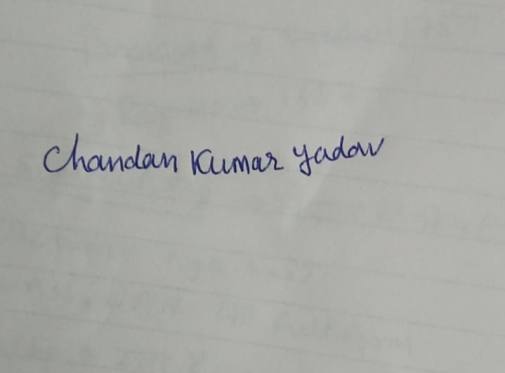 Chandan Kumar Yadav